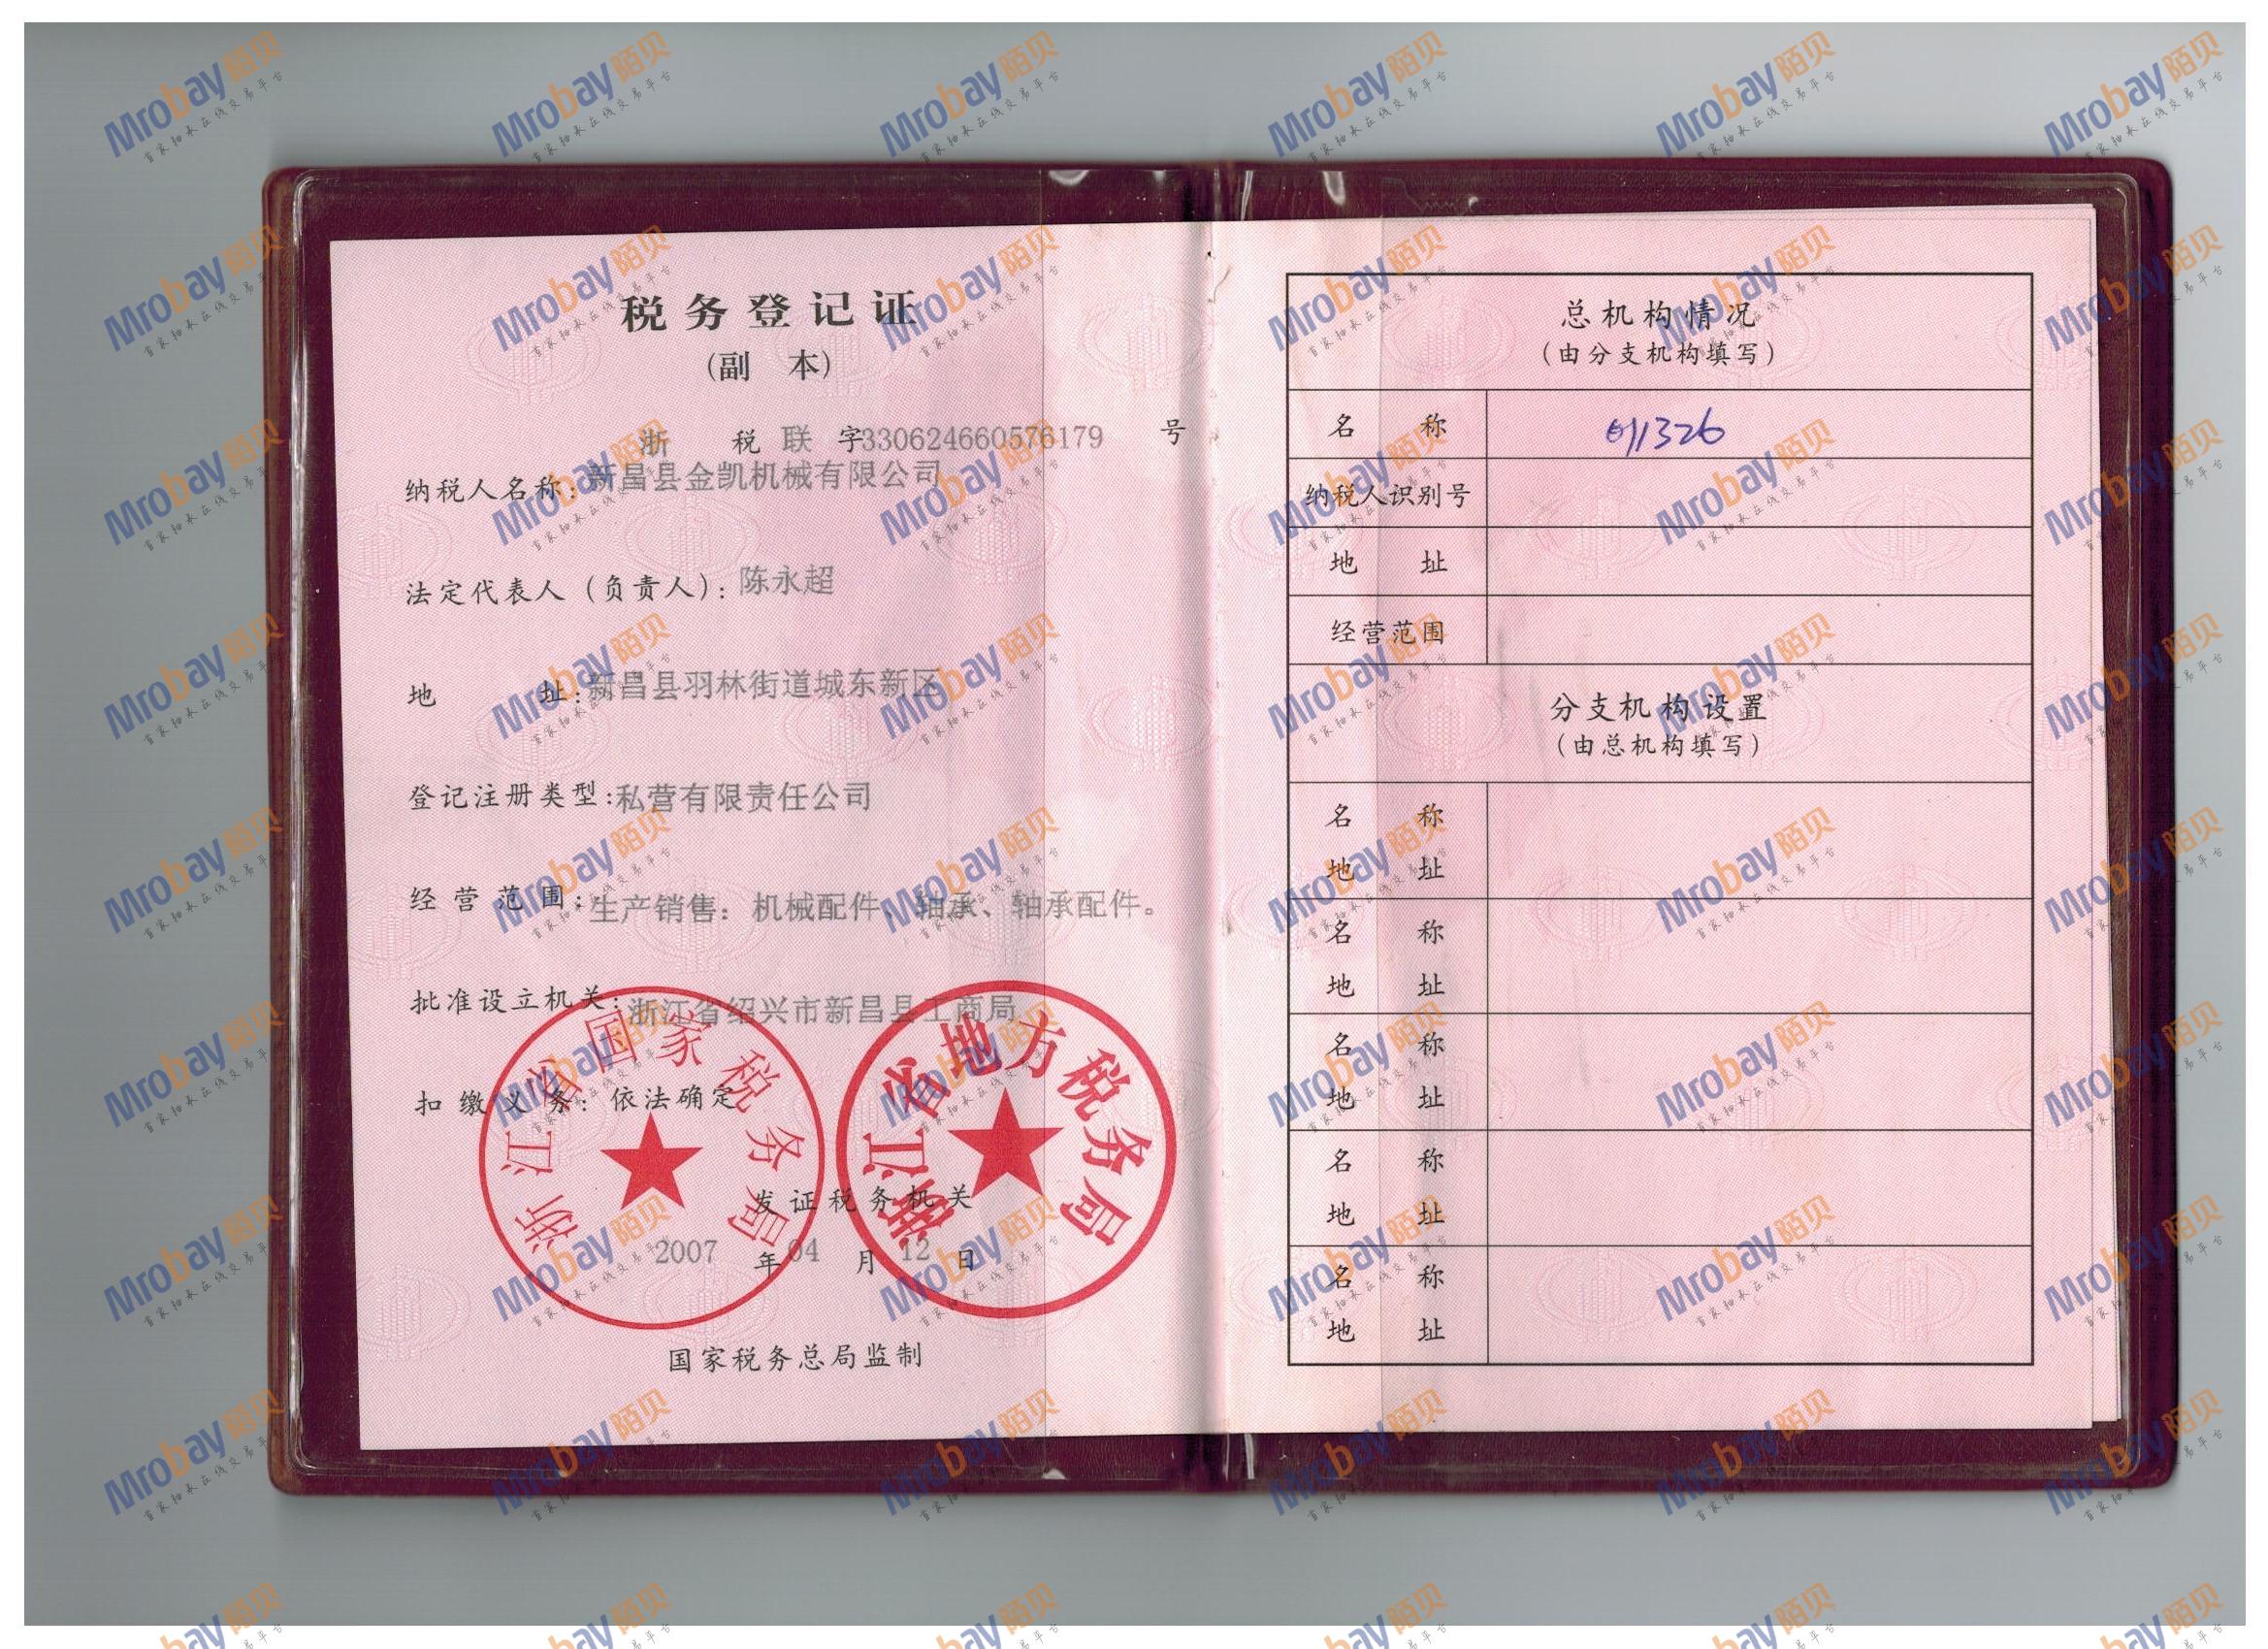 税务登记证
(副 本)
浙 税 联 字330624660576179 号
纳税人名称:新昌县金凯机械有限公司
法定代表人(负责人):陈永超
地 址:新昌县羽林街道城东新区
登记注册类型:私营有限责任公司
经营范围:生产销售:机械配件、轴承、轴承配件。
批准设立机关:浙江省绍兴市新昌县工商局
扣缴义务:依法确定
浙江省国家税务局
浙江省地方税务局
发证税务机关
2007 年 04 月 12 日
国家税务总局监制
总机构情况
(由分支机构填写)
名 称
纳税人识别号
地 址
经营范围
分支机构设置
(由总机构填写)
名 称
地 址
名 称
地 址
名 称
地 址
名 称
地 址
名 称
地 址
Mrobay陌贝
首家轴承在线交易平台